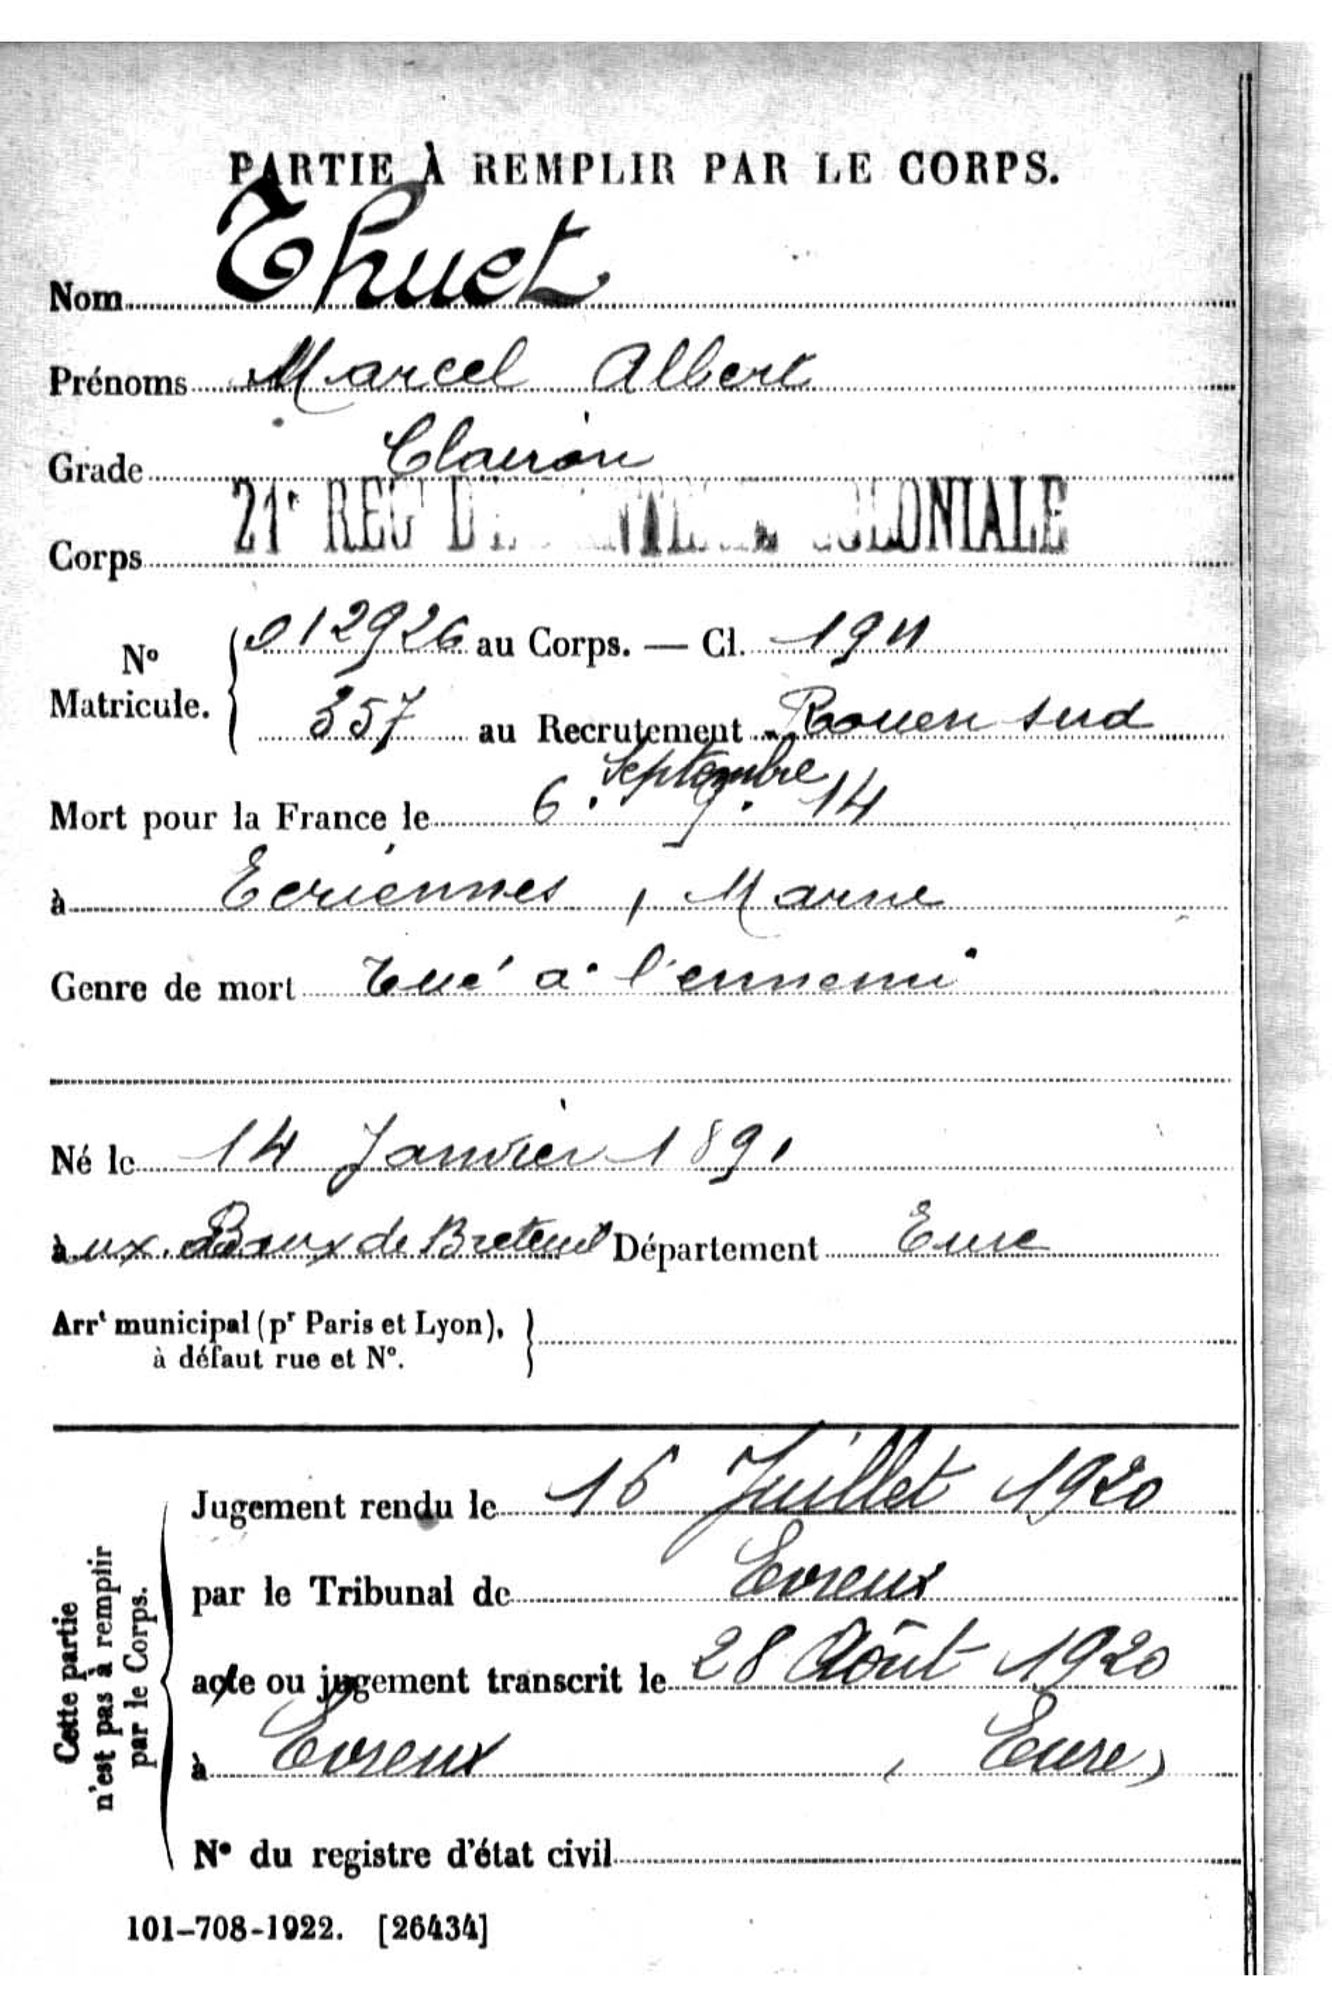 PARTIE À REMPLIR PAR LE CORPS.
Nom Thuet
Prénoms Marcel Albert
Grade Clairon
Corps 21e REGt D' COLONIALE
No Matricule. 012926 au Corps. — Cl. 1911
357 au Recrutement Rouen sud
Septembre
Mort pour la France le 6. 9. 14
à Ecriennes, Marne
Genre de mort tué à l'ennemi
Né le 14 Janvier 1891
aux Baux de Breteuil Département Eure
Arrt municipal (pr Paris et Lyon),
à défaut rue et No.
Cette partie
n'est pas à remplir
par le Corps.
Jugement rendu le 16 Juillet 1920
par le Tribunal de Evreux
acte ou jugement transcrit le 28 Août 1920
à Evreux (Eure)
No du registre d'état civil
101-708-1922. [26434]